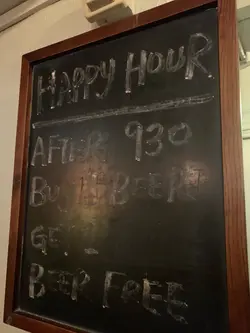 HAPPY HOUR
AFTER 930
BUY 1 BEER
GET 1
BEER FREE